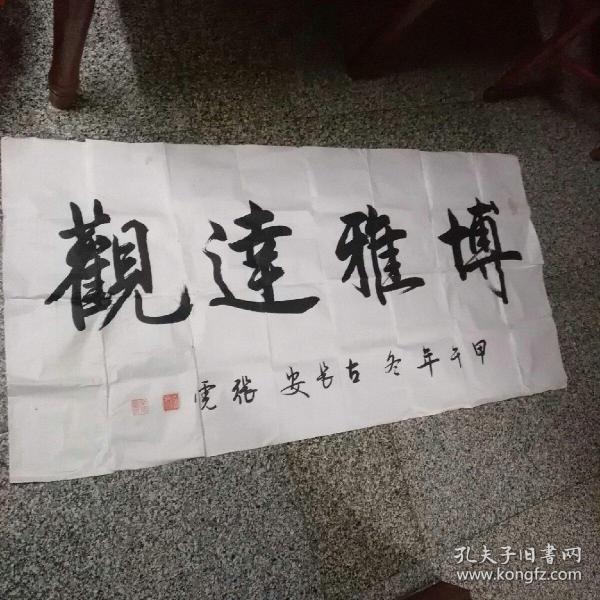 博雅達觀
甲午年冬古长安張虎
孔夫子旧书网
www.kongfz.com